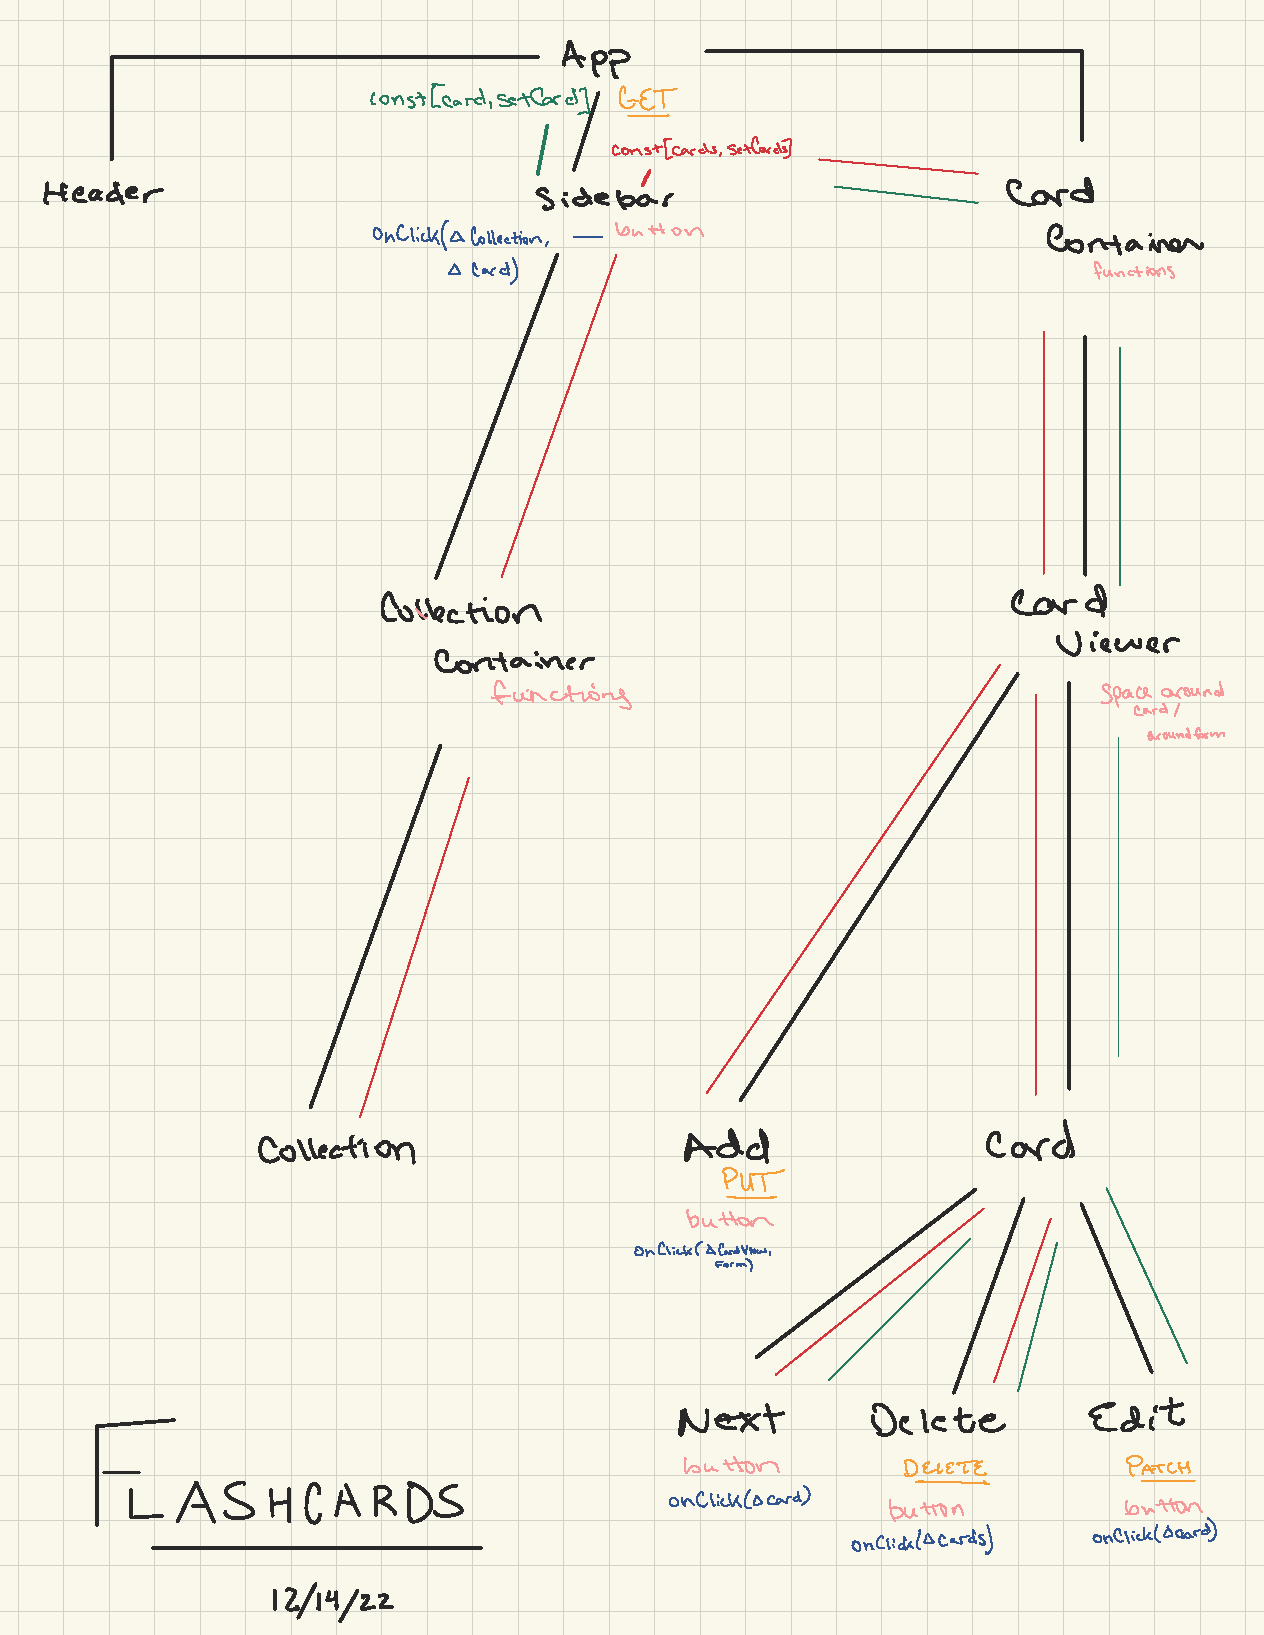 App
const[card, setCard]
GET
const[cards, setCards]
Header
Sidebar
Card
Container
functions
onClick(Δ Collection,
Δ Card)
button
Collection
Container
functions
Card
Viewer
Space around
card/
around form
Collection
Add
PUT
button
onClick(Δ CardView,
Form)
Card
Next
button
onClick(Δ card)
Delete
DELETE
button
onClick(Δ Cards)
Edit
PATCH
button
onClick(Δ Card)
FLASHCARDS
12/14/22